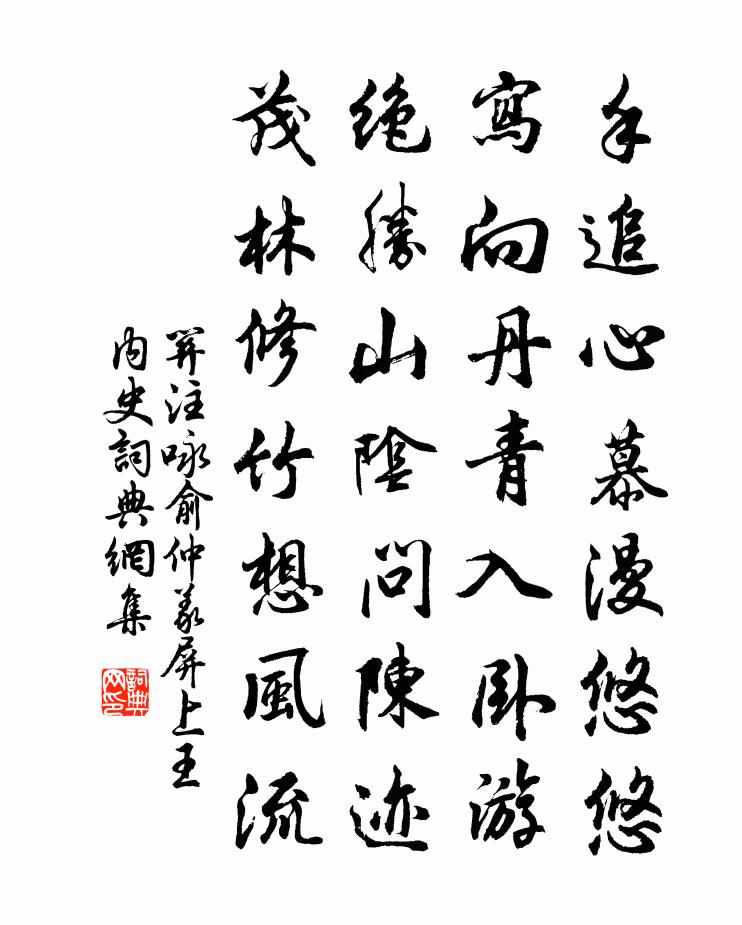 手追心慕漫悠悠
寫向丹青入卧游
絶勝山陰問陳迹
茂林修竹想風流
羿注咏俞仲羲屏上王
内史詞典網集
詞典
网